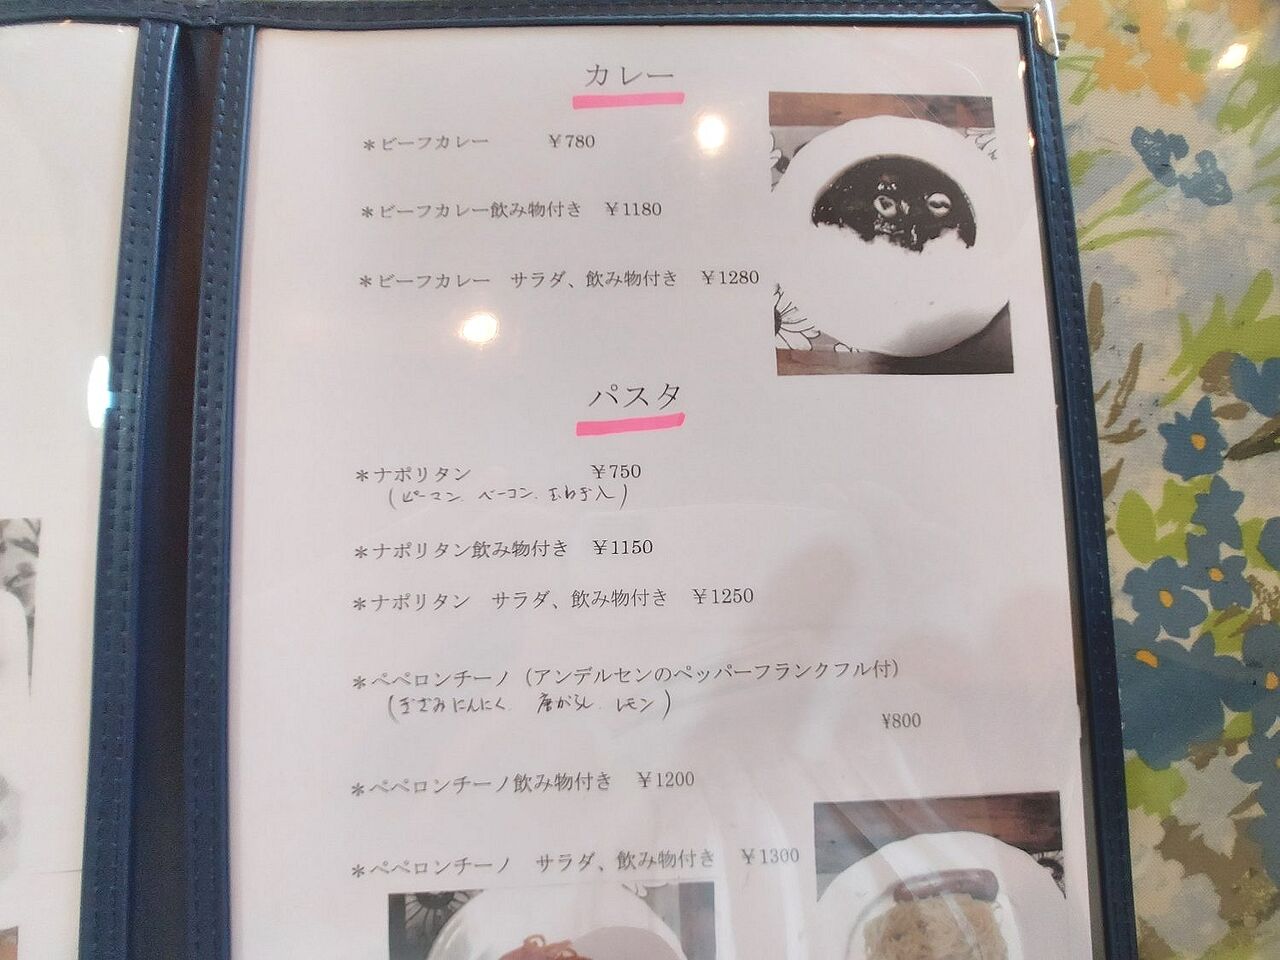 カレー
＊ビーフカレー　￥780
＊ビーフカレー飲み物付き　￥1180
＊ビーフカレー　サラダ、飲み物付き　￥1280
パスタ
＊ナポリタン　￥750
(ピーマン、ベーコン、玉ねぎ入)
＊ナポリタン飲み物付き　￥1150
＊ナポリタン　サラダ、飲み物付き　￥1250
＊ペペロンチーノ（アンデルセンのペッパーフランクフル付）
(きざみにんにく、唐がらし、レモン)
¥800
＊ペペロンチーノ飲み物付き　￥1200
＊ペペロンチーノ　サラダ、飲み物付き　￥1300